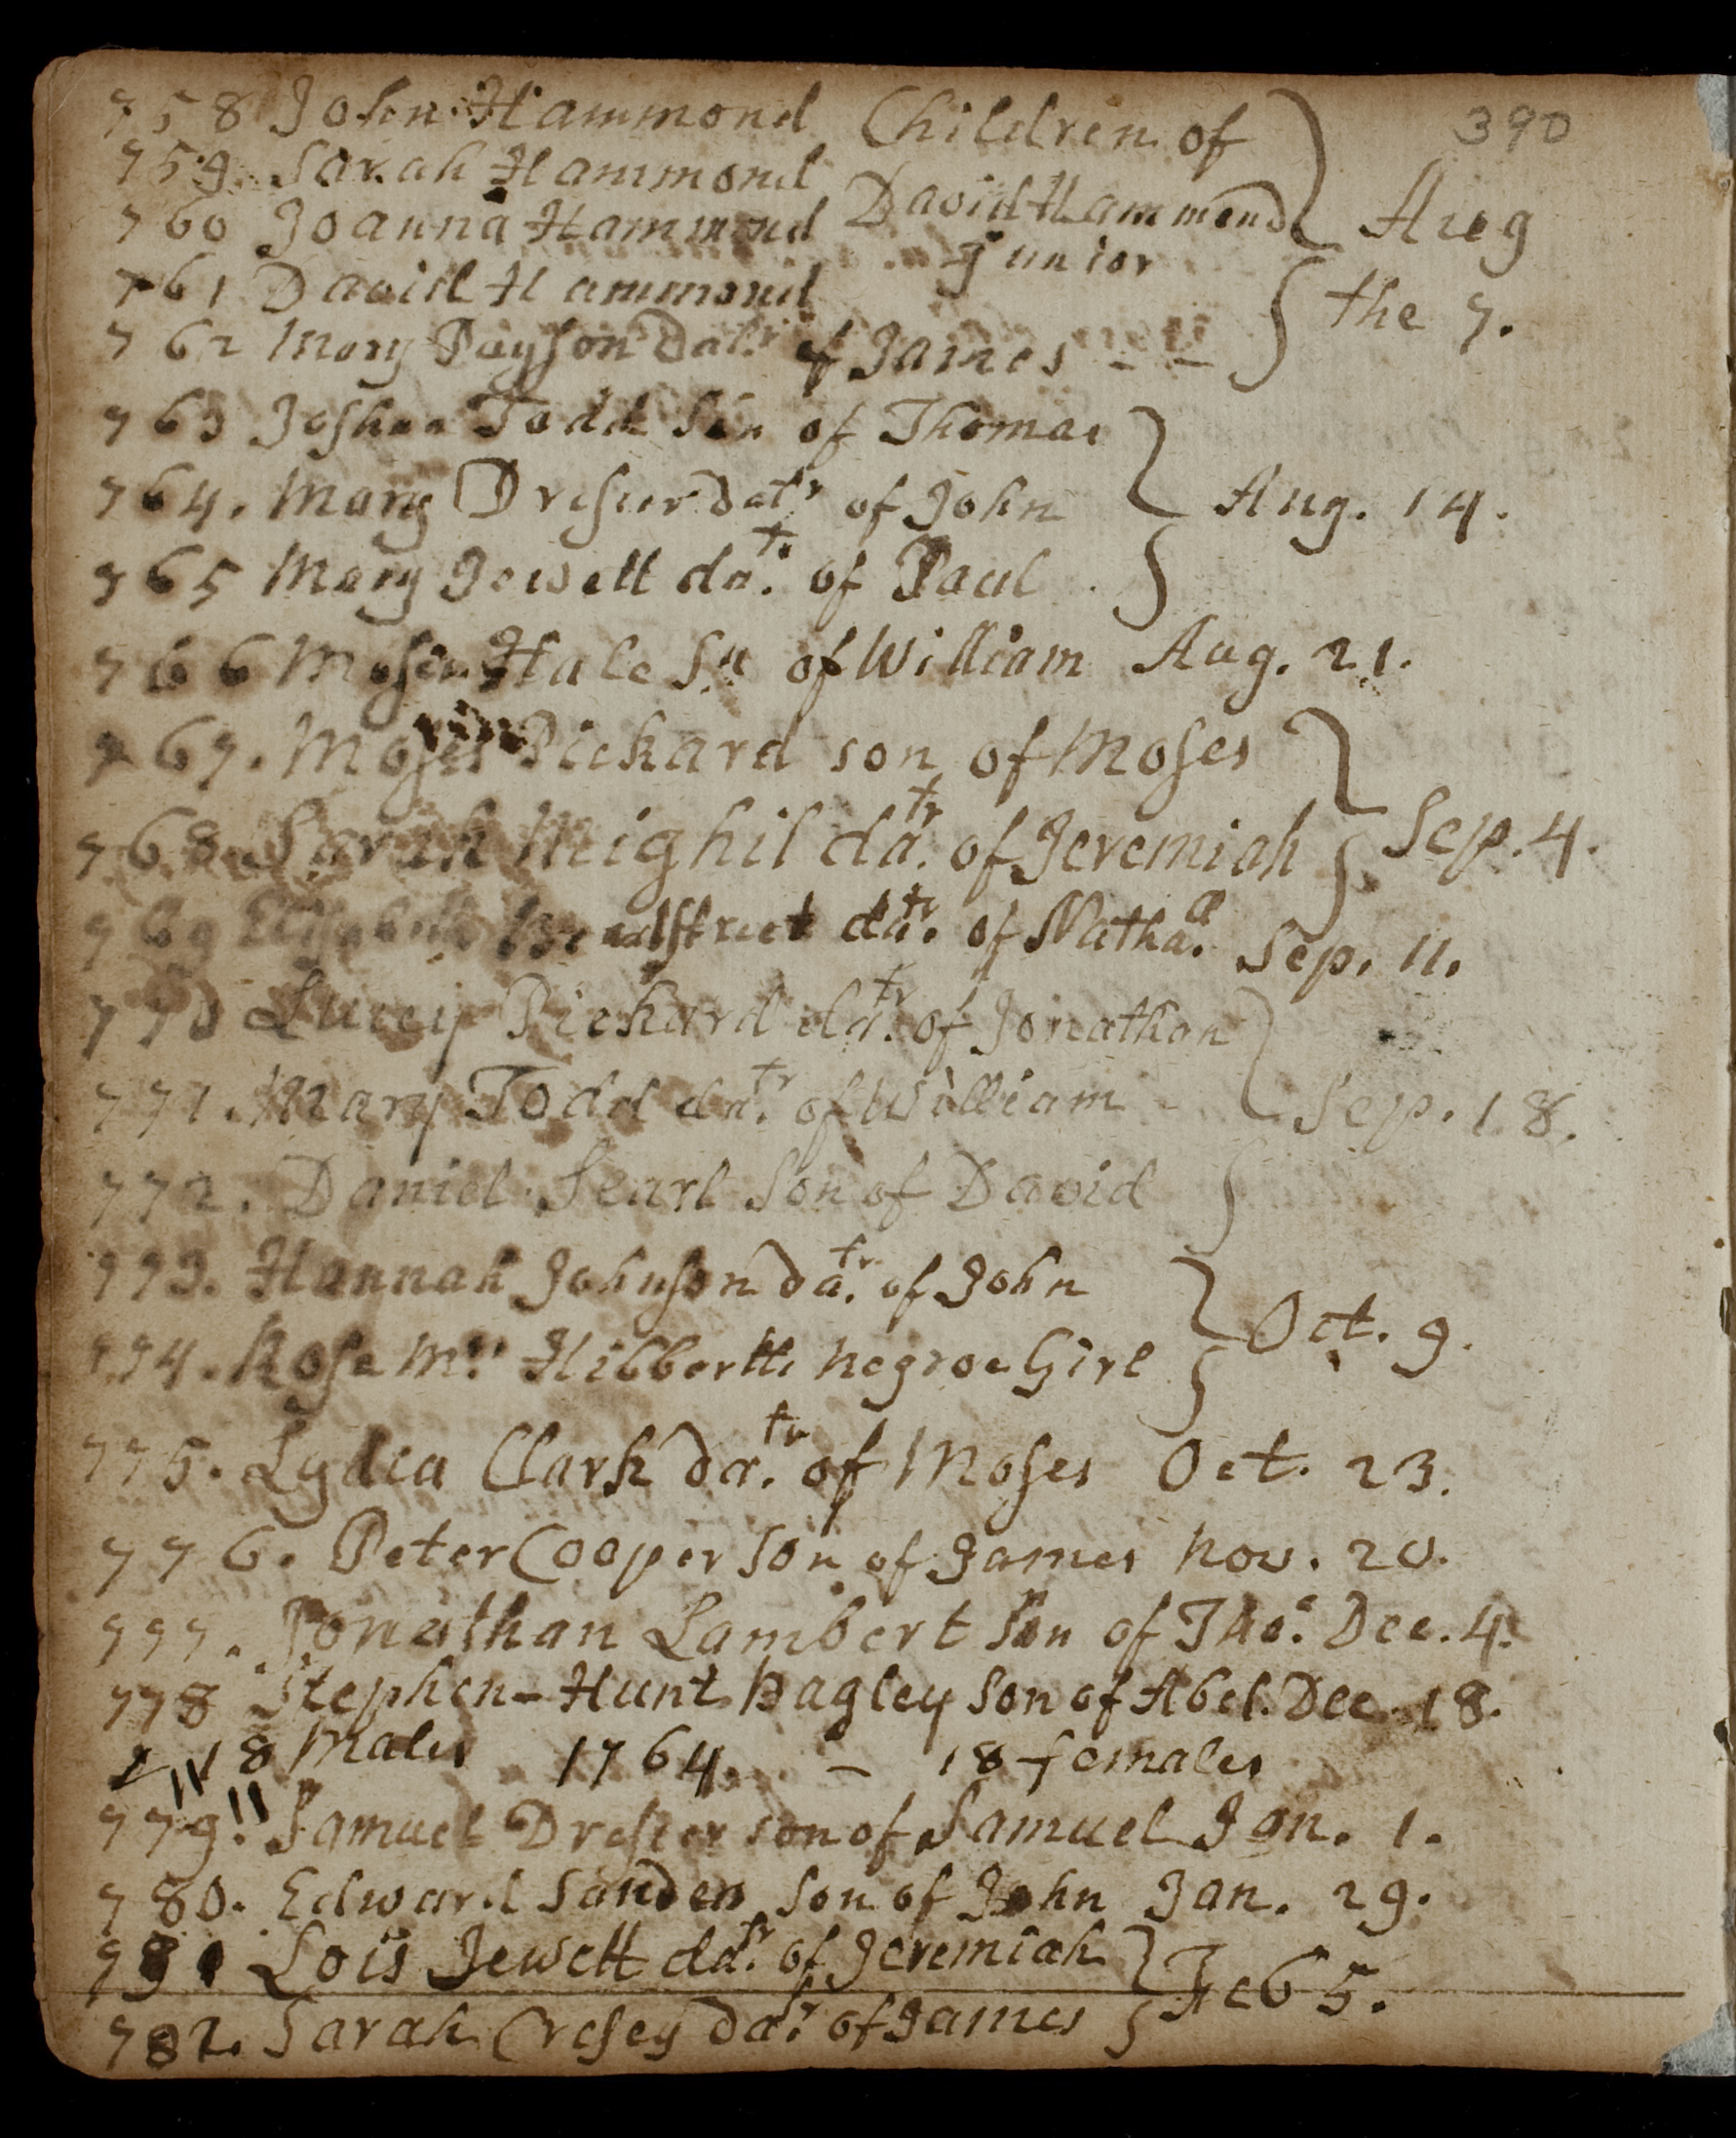 390
758 John Hammond Children of
759. Sarah Hammond
760 Joanna Hammond David Hammond Aug
Junior
761 David Hammond the 7.
762 Mary Payson Datr of James - -
763 Joshua Todd Son of Thomas
764. Mary Dresser datr of John Aug. 14.
765 Mary Jewett datr. of Paul
766 Moses Hale Sn of William Aug. 21.
767. Moses Pickard son of Moses
768 Sarah Mighil datr. of Jeremiah Sep. 4.
769 Elisabeth Bradstreet datr. of Nathal. Sep. 11.
770 Lucey Pickard datr. of Jonathan
771. Mary Todd datr. of William - Sep. 18.
772. Daniel Searl Son of David
773. Hannah Johnson datr. of John
774. Rose Mrs Hibbertts Negroe Girl Oct. 9.
775. Lydia Clark datr. of Moses Oct. 23.
776. Peter Cooper Son of James Nov. 20.
777. Jonathan Lambert Son of Thos. Dec. 4.
778 Stephen-Hunt Bagley Son of Abel. Dec. 18.
18 Males 1764. - 18 females
779. Samuel Dresser son of Samuel Jan. 1.
780. Edward Sanders Son of John Jan. 29.
781 Lois Jewett datr. of Jeremiah
Feb 5.
782. Sarah Cresey datr. of James